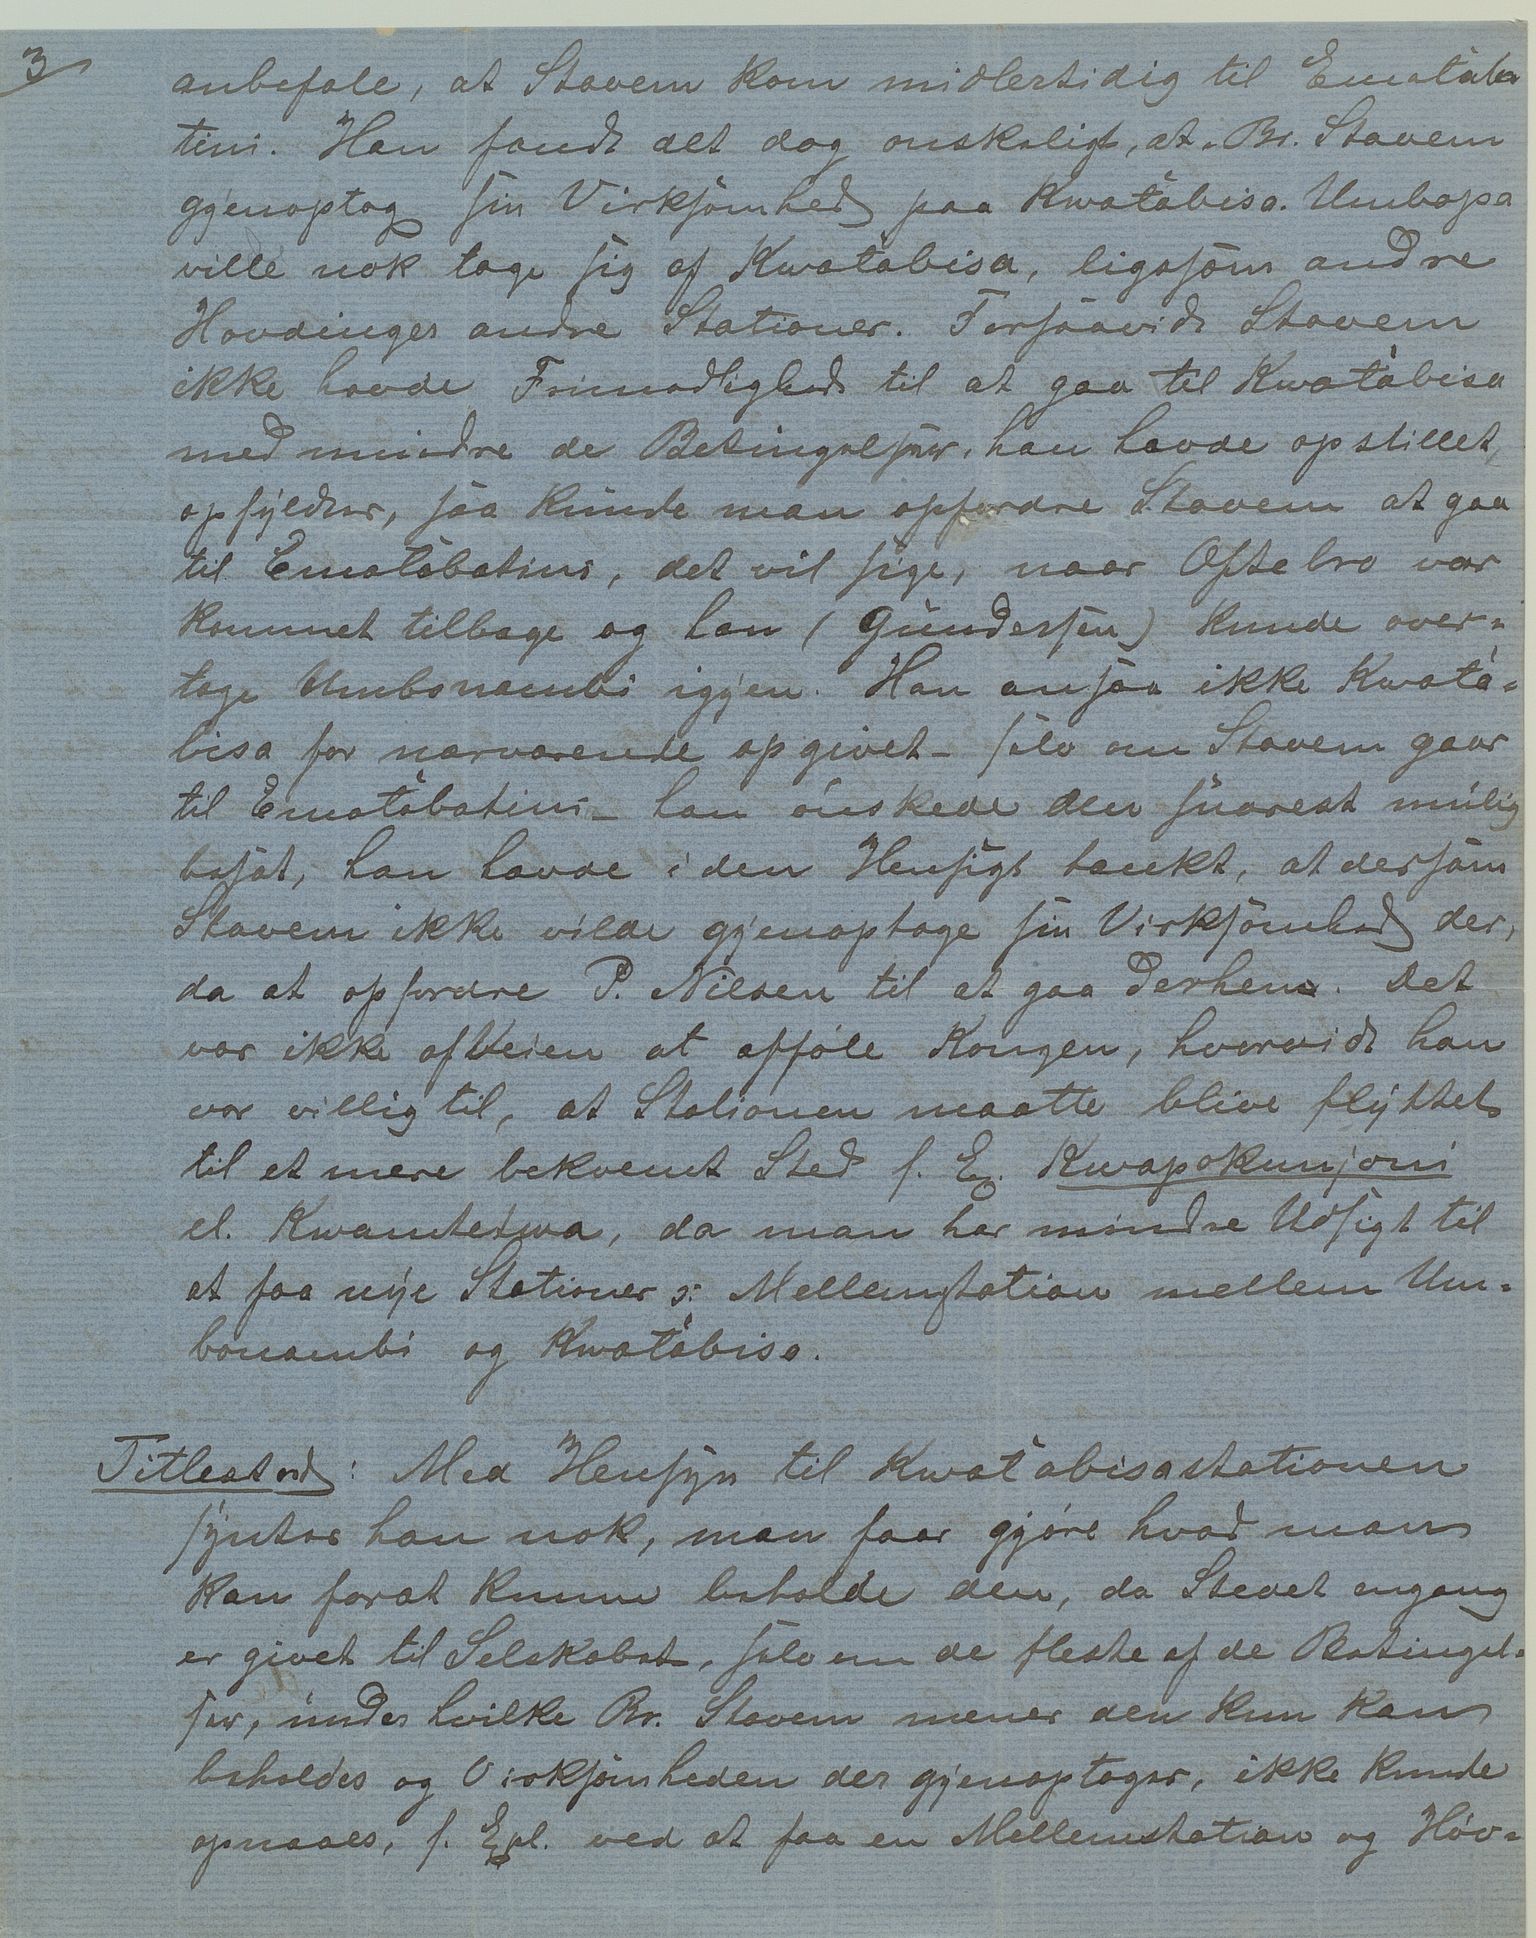 3
anbefale, at Stavem kom midlertidig til Emataba
tini. Han fandt det dog ønskeligt, at Br. Stavem
gjenoptog sin Virksomhed paa Kwatabisa. Umbopa
ville nok tage sig af Kwatabisa, ligesom andre
Høvdinger andre Stationer. Forsaavidt Stavem
ikke havde Frimodighed til at gaa til Kwatabisa
med mindre de Betingelser, han havde opstillet,
opfyldtes, saa kunde man opfordre Stavem at gaa
til Ematabatini, det vil sige, naar Oftebro var
kommet tilbage og han (Gundersen) kunde over-
tage Umbonambi igjen. Han ansaa ikke Kwata-
bisa for nærværende opgivet – selv om Stavem gaar
til Ematabatini – han ønskede den snarest mulig
besat, han havde i den Hensigt tænkt, at dersom
Stavem ikke vilde gjenoptage sin Virksomhed der,
da at opfordre P. Nilsen til at gaa derhen. Det
var ikke afveien at afføle Kongen, hvorvidt han
var villig til, at Stationen maatte blive flyttet
til et mere bekvemt Sted f. Ex. Kwapokunjoni
el. Kwamtetwa, da man har mindre Udsigt til
at faa nye Stationer ɔ: Mellemstation mellem Um-
bonambi og Kwatabisa.
Titlestad: Med Hensyn til Kwatabisastationen
syntes han nok, man faar gjøre hvad man
kan forat kunne beholde den, da Stedet engang
er givet til Selskabet, selv om de fleste af de Betingel-
ser, under hvilke Br. Stavem mener den kun kan
beholdes og Virksomheden der gjenoptages, ikke kunde
opnaaes, f. Expl. ved at faa en Mellemstation og Høv-